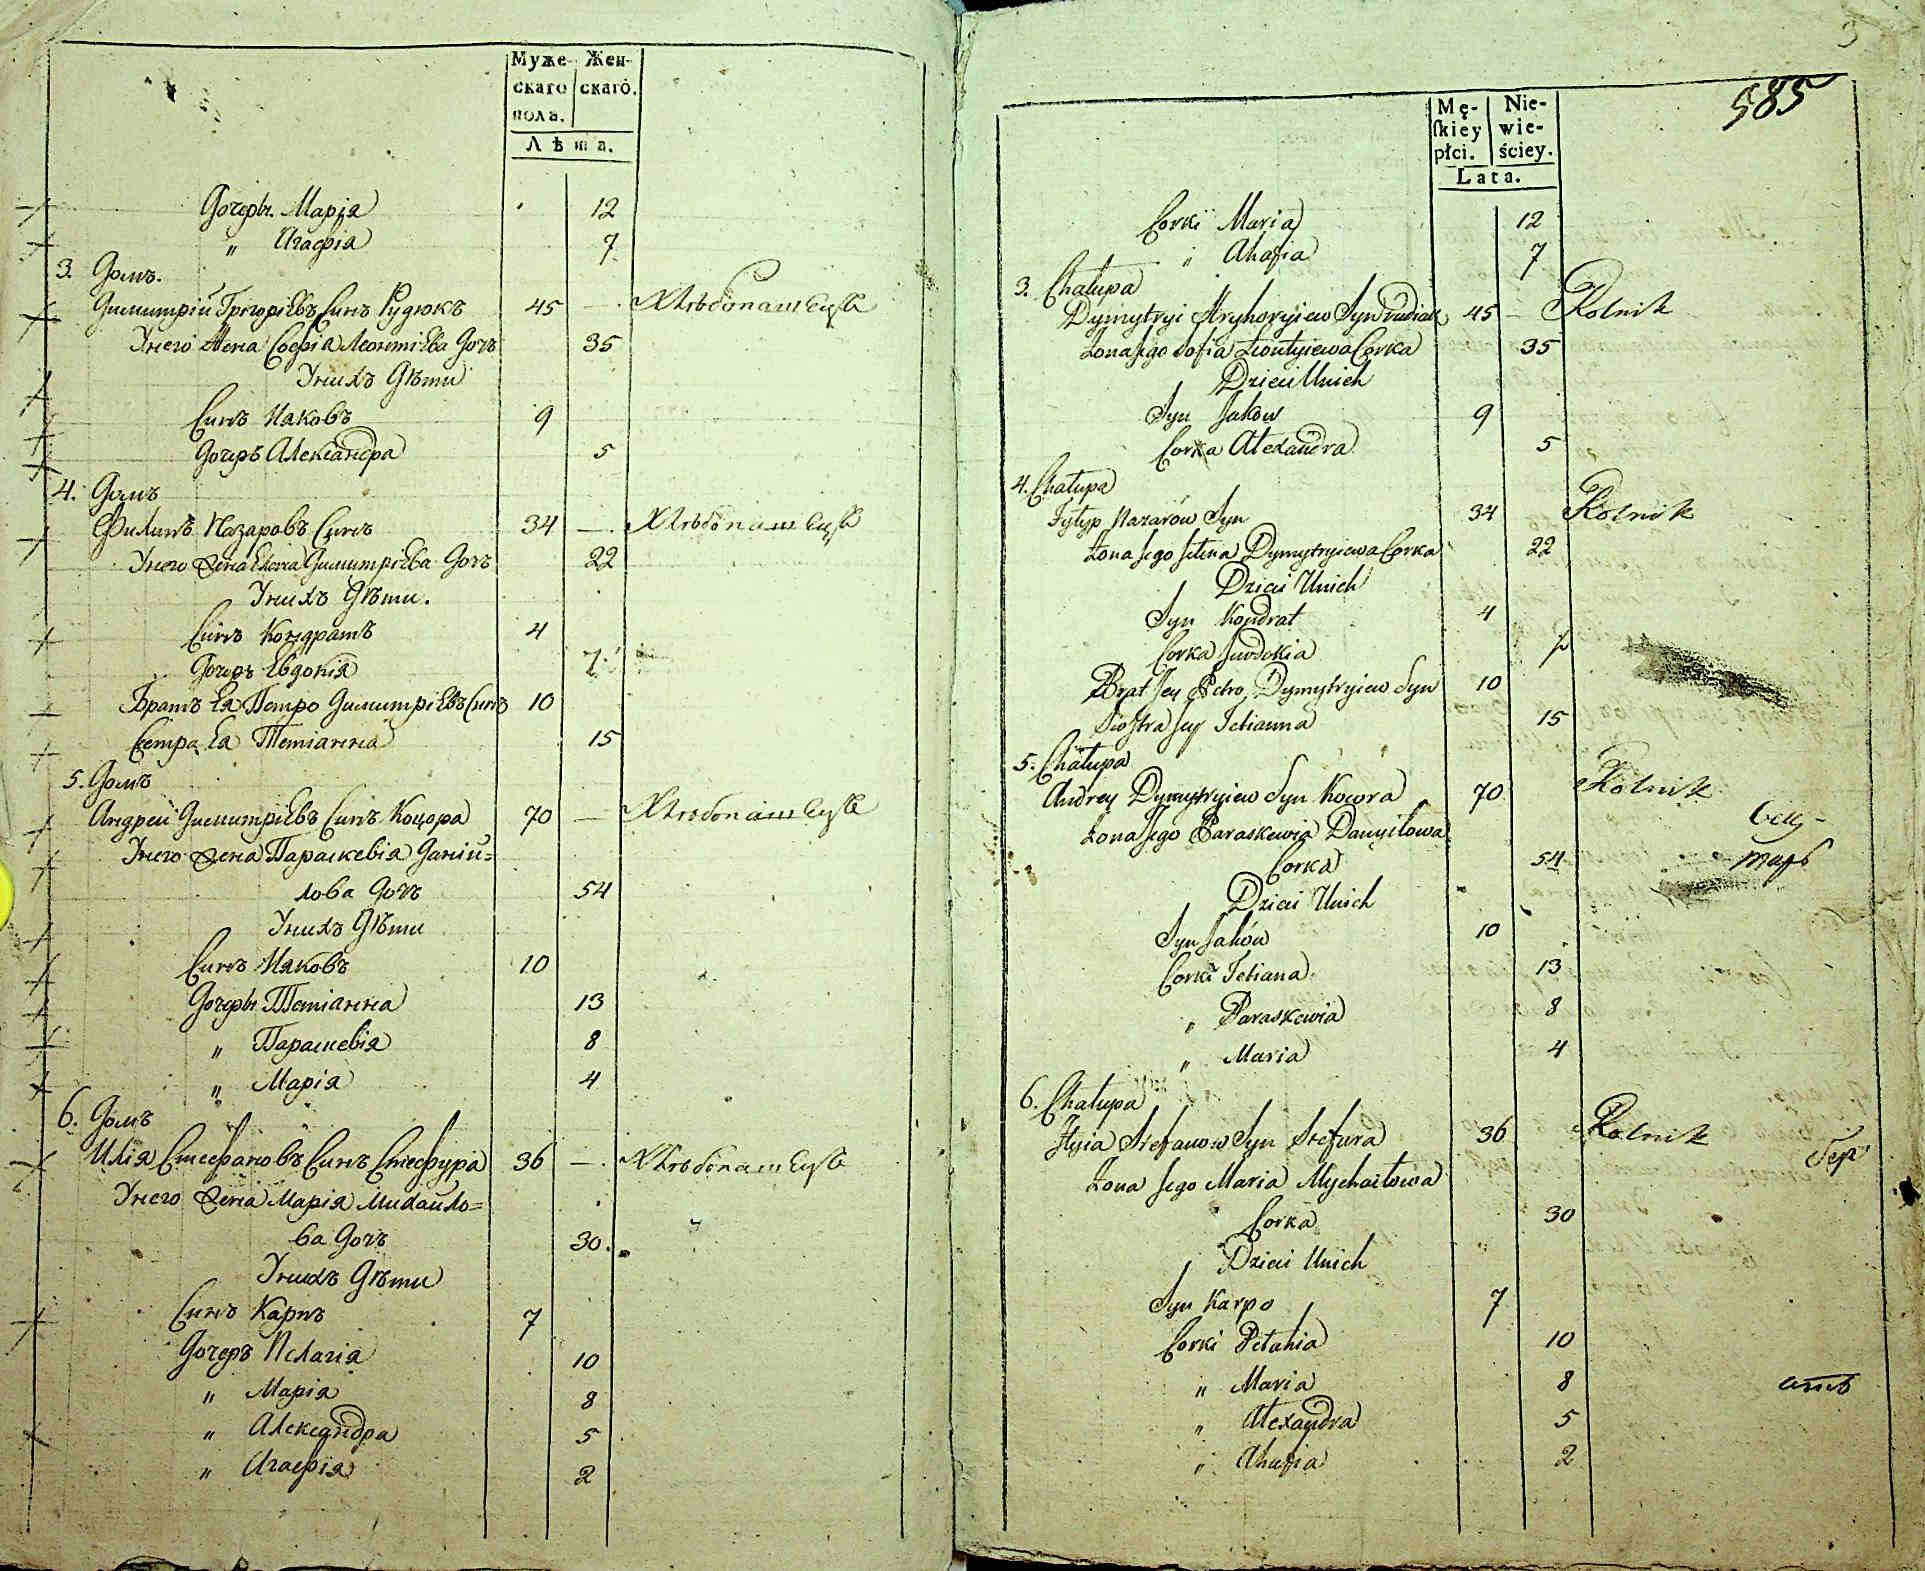 Муже-
скаго
полъ.
Жен-
скаго.
Лѣта.
Дочерн. Марія 12
„ Агафія 7
3. Домъ.
Димитрій Григоріевъ Синъ Рудюкъ 45 — Хлѣбопашецъ
У него Жена Софія Леонтіева Доч 35
У нихъ Дѣти
Синъ Іаковъ 9
Дочеръ Александра 5
4. Домъ
Филипъ Назаровъ Синъ 34 — Хлѣбопашецъ
У него Жена Елена Димитріева Доч 22
У нихъ Дѣти.
Синъ Кондратъ 4
Дочеръ Евдокія
Братъ Ея Петро Димитріевъ Синъ 10
Сестра Ея Тетіанна 15
5. Домъ
Андрей Димитріевъ Синъ Коцюра 70 — Хлѣбопашецъ
У него Жена Параскевія Даній=
лова Доч 54
У нихъ Дѣти
Синъ Іаковъ 10
Дочерн. Тетіанна 13
„ Параскевія 8
„ Марія 4
6. Домъ
Илія Стефановъ Синъ Стефура 36 — Хлѣбопашецъ
У него Жена Марія Михайло=
ва Доч 30.
У нихъ Дѣти
Синъ Карпъ 7
Дочеръ Пелагія 10
„ Марія 8
„ Александра 5
„ Агафія 2
585
Mę-
skiey
płci.
Nie-
wie-
ściey.
Lata.
Corki Maria 12
„ Ahafia 7
3. Chałupa
Dymytryi Hryhoryiew Syn Rudiuk 45 — Rolnik
Zona Jego Sofia Leontyiewa Corka 35
Dzieci Unich
Syn Jakow 9
Corka Alexandra 5
4. Chałupa
Fyłyp Nazarow Syn 34 Rolnik
Zona Jego Jelena Dymytryiewa Corka 22
Dzieci Unich
Syn Kondrat 4
Corka Jewdokia
Brat Jey Petro Dymytryiew Syn 10
Siostra Jey Tetianna 15
5. Chałupa
Andrey Dymytryiew Syn Kocora 70 Rolnik
Zona Jego Paraskewia Danyiłowa
Corka 54
Dzieci Unich
Syn Jaków 10
Corki Tetiana 13
„ Paraskewia 8
„ Maria 4
6. Chałupa
Jłyia Stefanow Syn Stefura 36 Rolnik
Zona Jego Maria Mychaiłowa
Corka 30
Dzieci Unich
Syn Karpo 7
Corki Pełahia 10
„ Maria 8
„ Alexandra 5
„ Ahafia 2